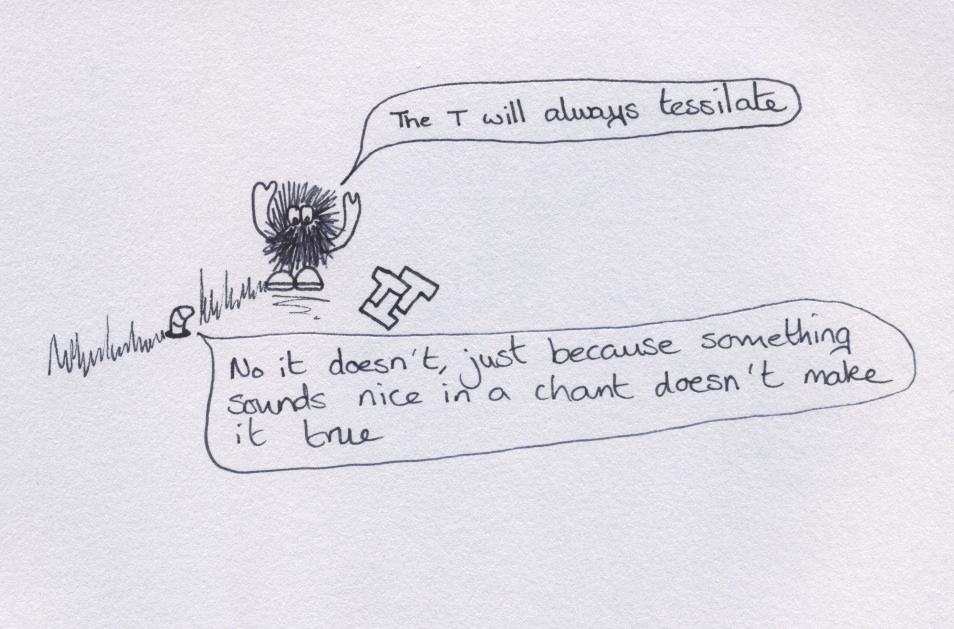 The T will always tessilate
No it doesn't, just because something
sounds nice in a chant doesn't make
it true